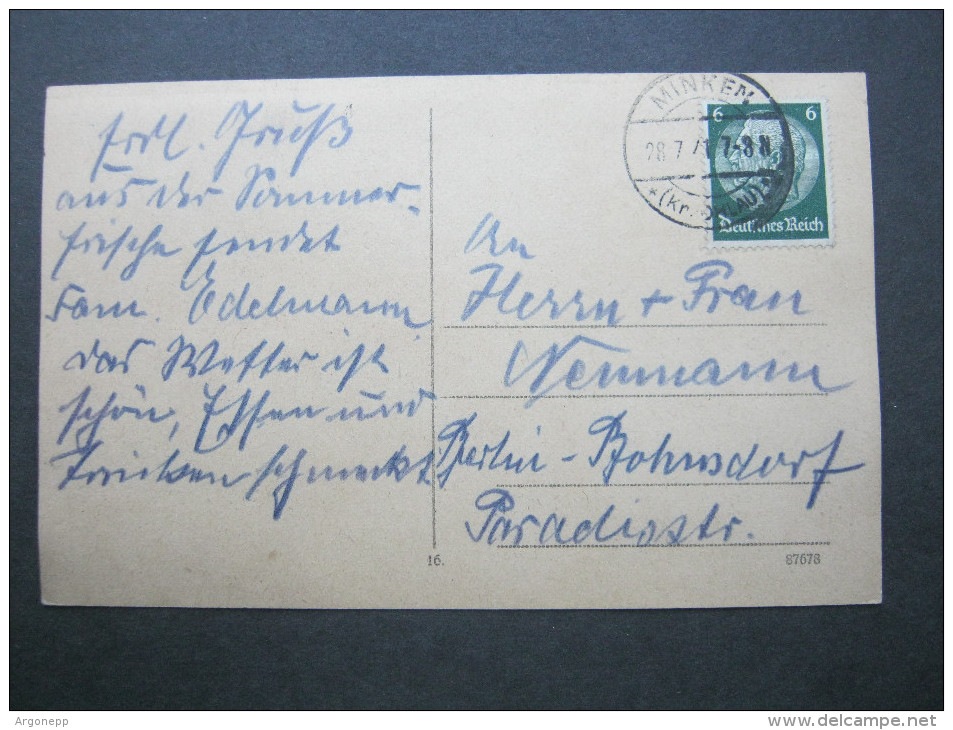 frdl. Gruß
aus der Sommer-
frische sendet
Fam. Edelmann
das Wetter ist
schön, Essen und
Trinken schmeckt
MINKEN
28.7.41 7-8
(Kr. OHLAU)
6 6
Deutsches Reich
An
Herrn + Frau
Neumann
Berlin-Bohnsdorf
Paradiesstr.
16.
87678
Argonepp
delcampe.net